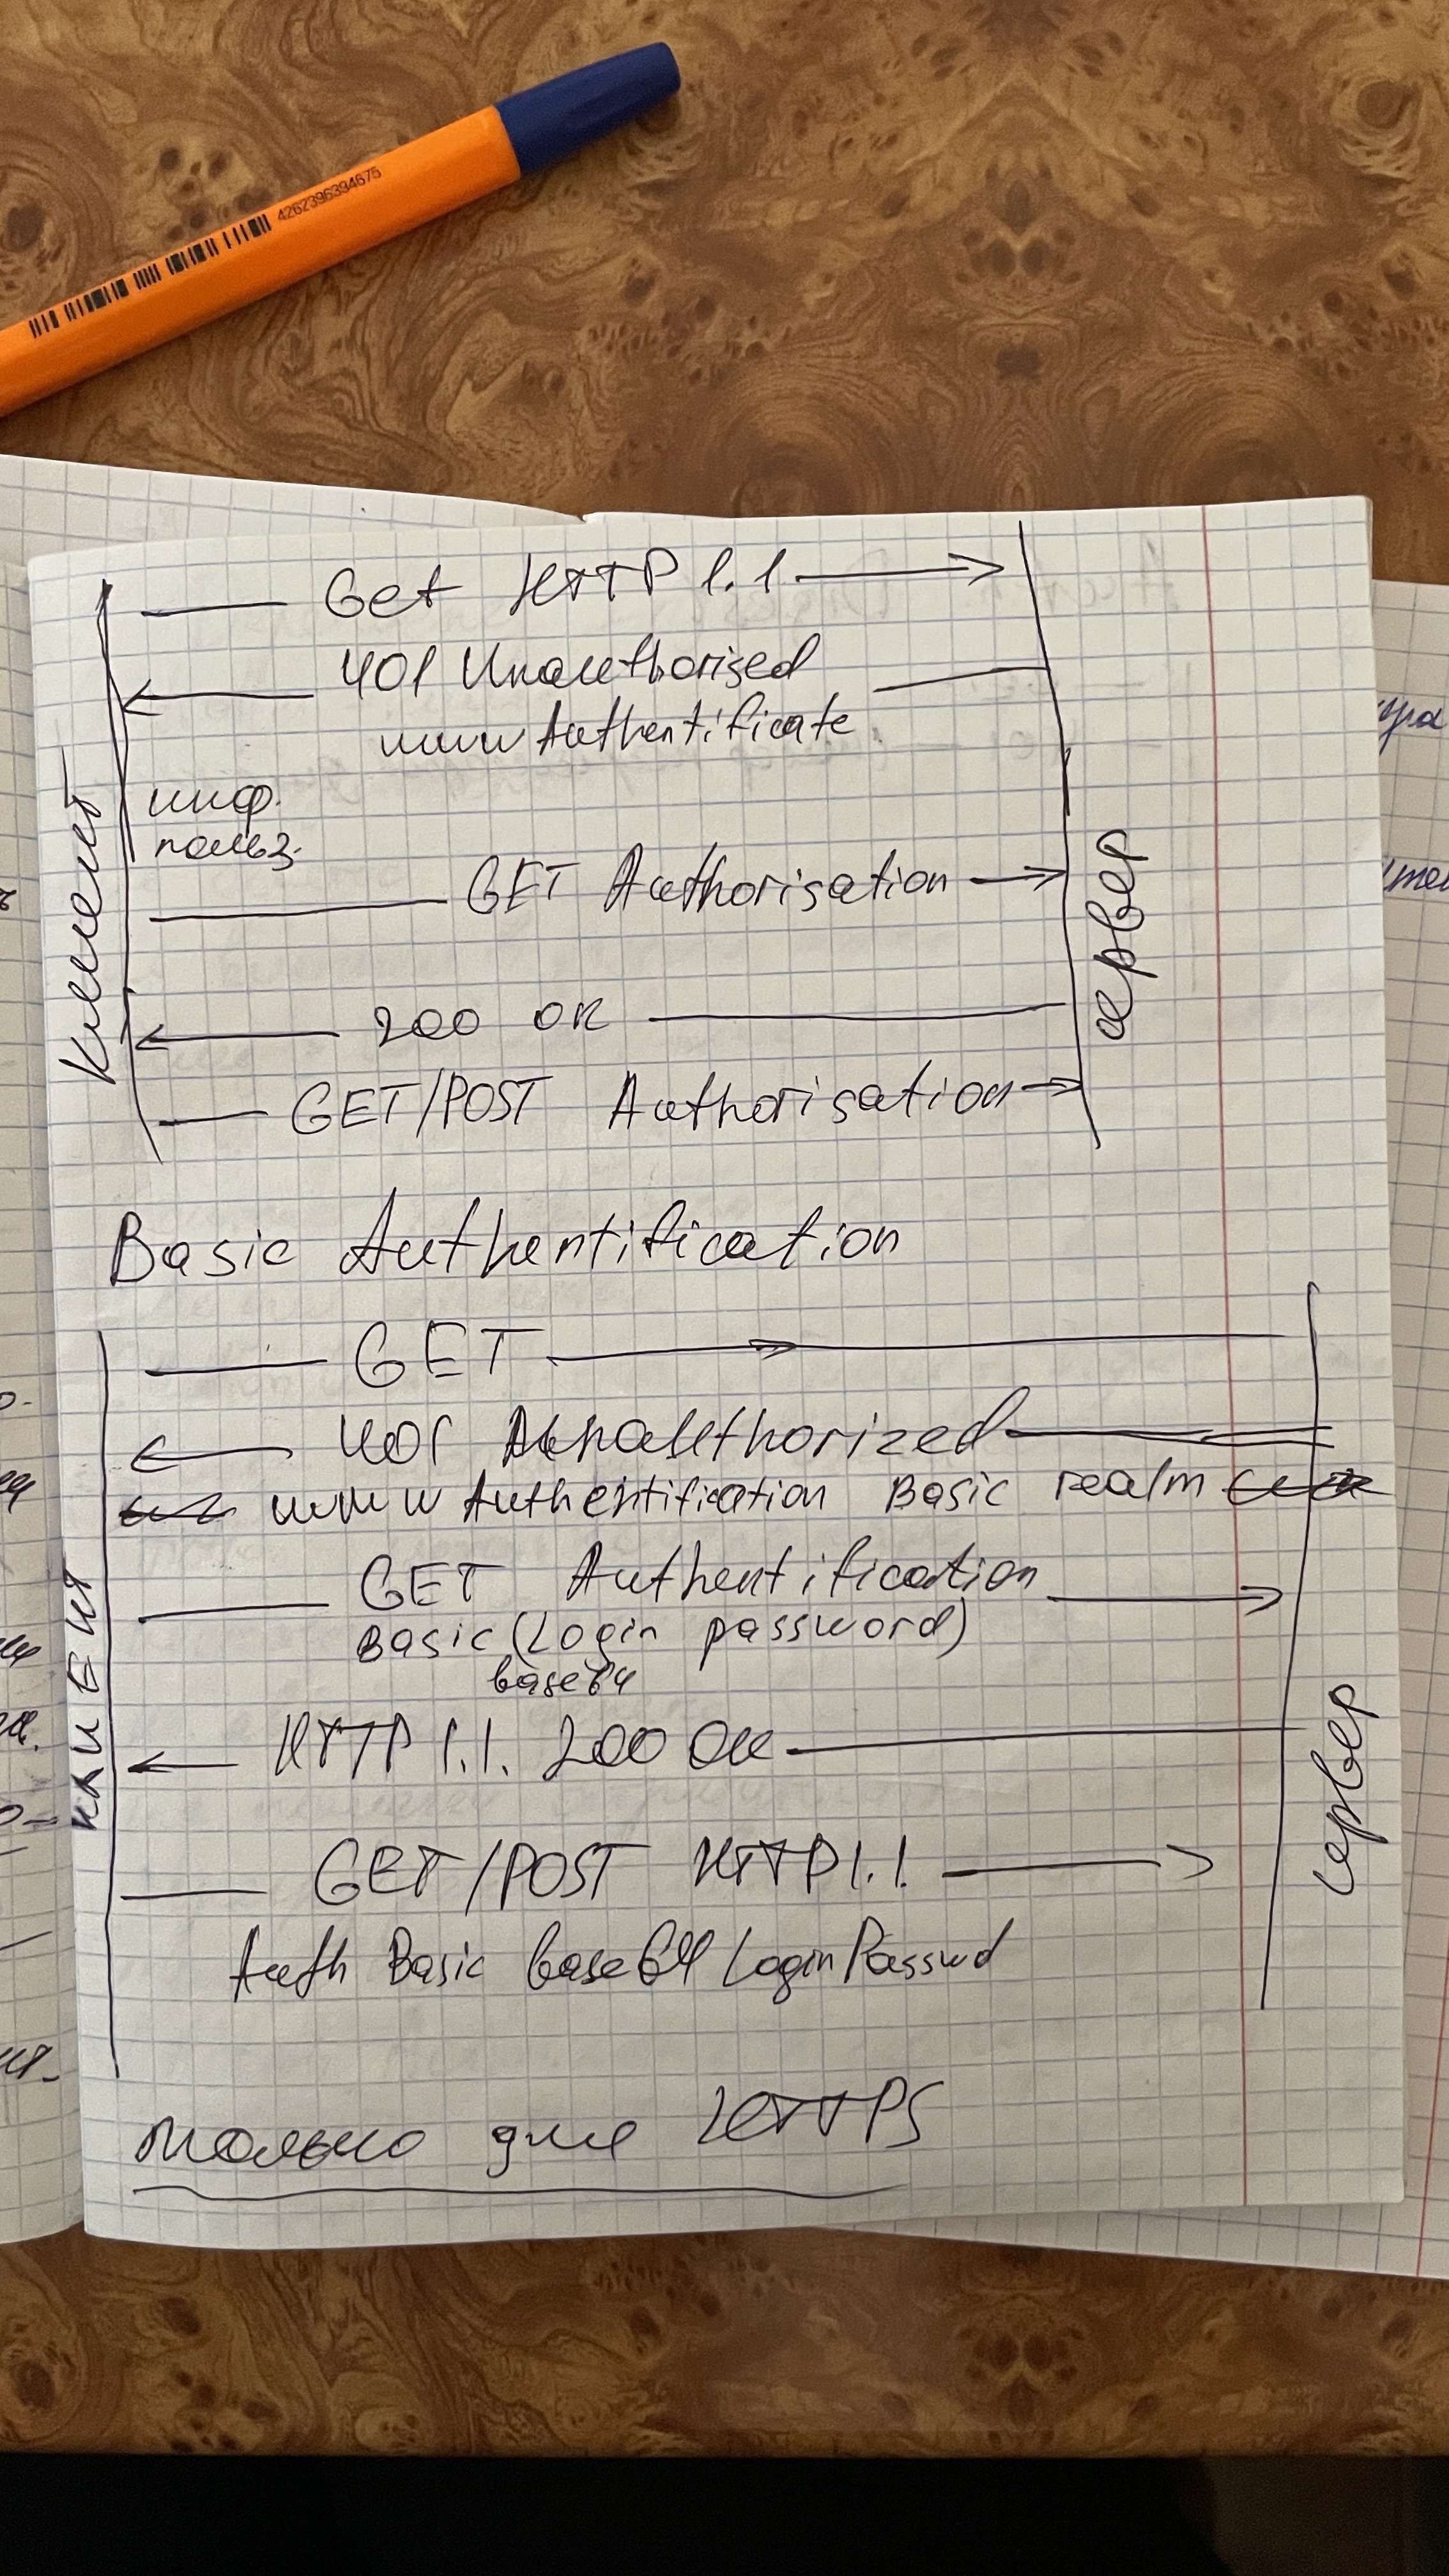 4262396394675
Get HTTP 1.1
401 Unauthorised
www Authentificate
инф.
польз.
GET Authorisation
200 OK
GET/POST Authorisation
Клиент
сервер
Basic Authentification
GET
401 Unauthorized
www Authentification Basic realm
GET Authentification
Basic (Login password)
base64
HTTP 1.1. 200 OK
GET/POST HTTP 1.1.
Auth Basic base64 LoginPasswd
клиент
сервер
только для HTTPS